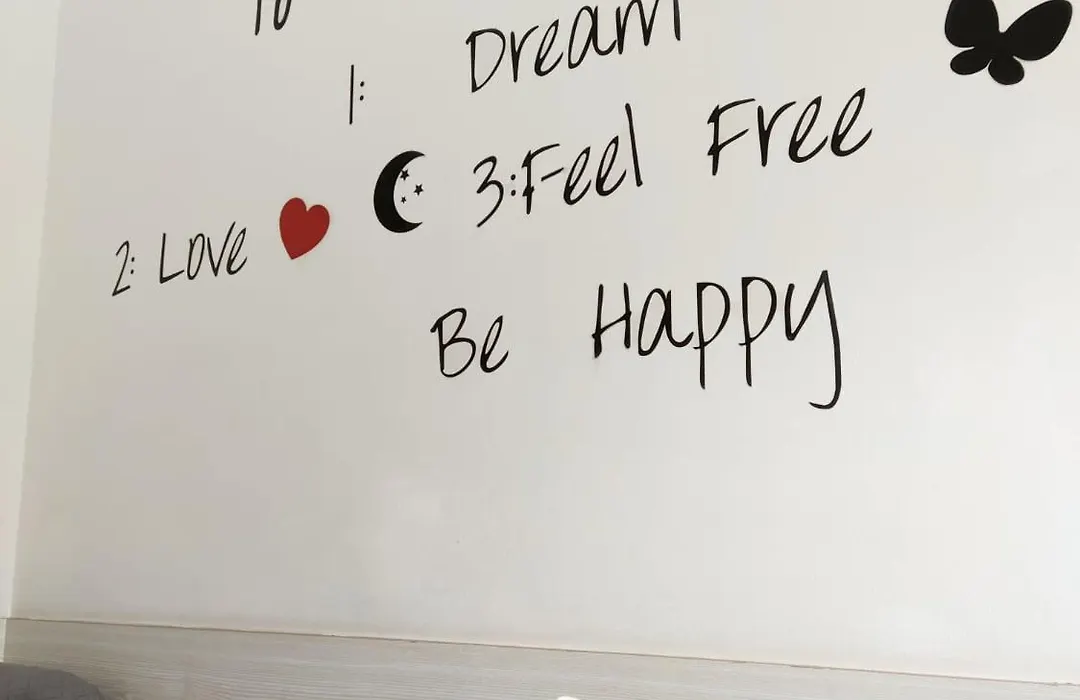 To
1: Dream
2: Love
3:Feel Free
Be Happy